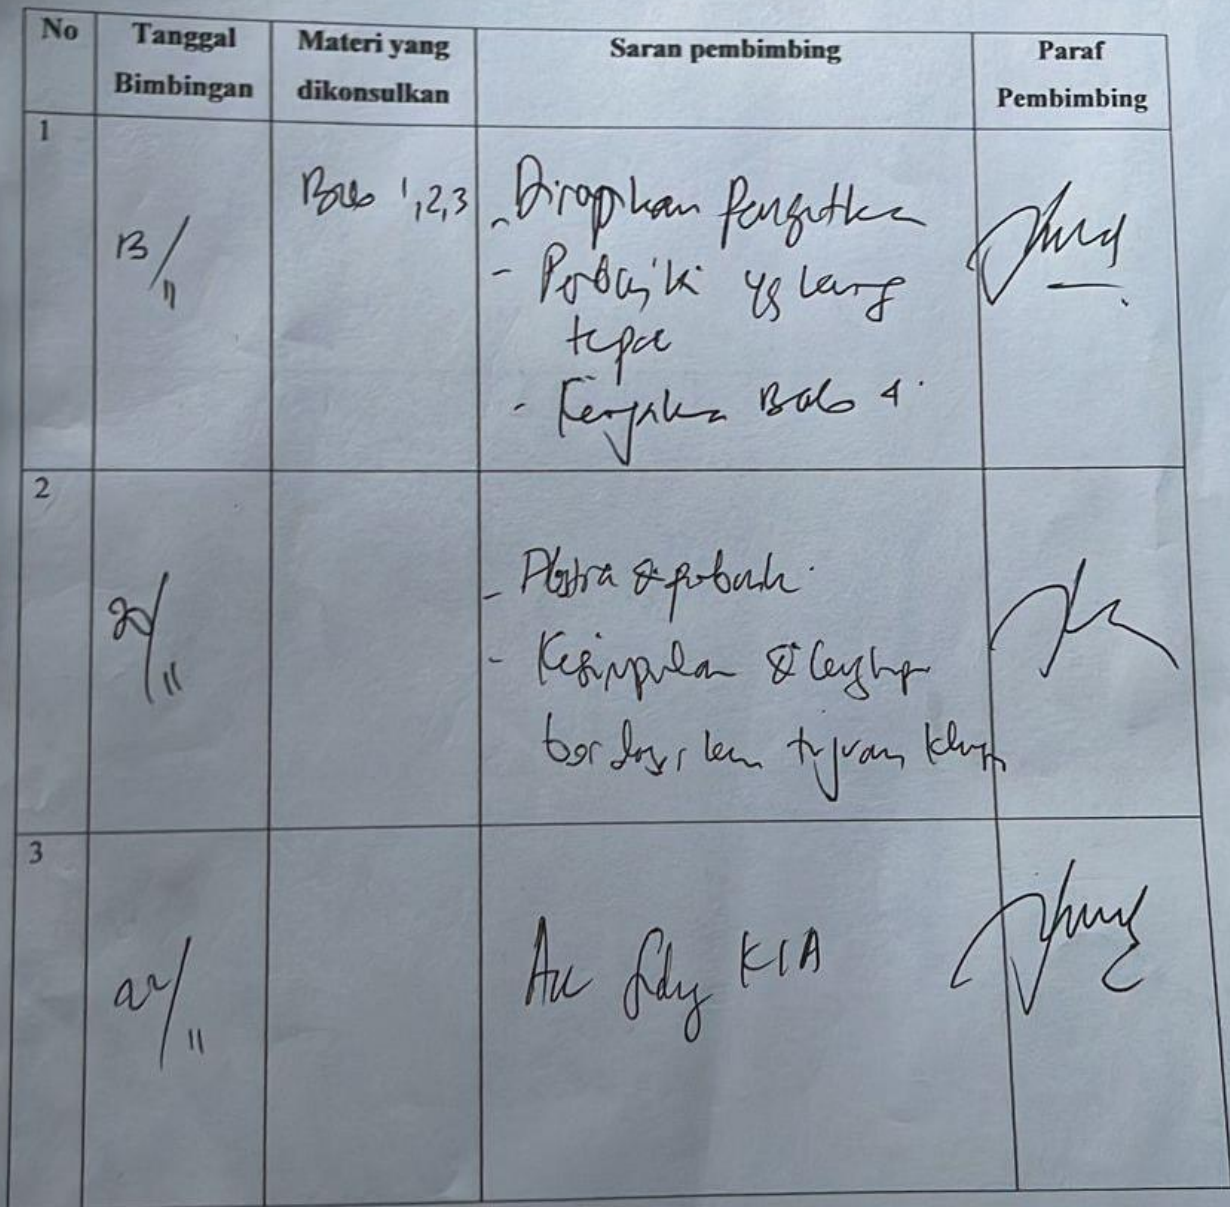 No Tanggal Bimbingan Materi yang dikonsulkan Saran pembimbing Paraf Pembimbing
1
13/11
Bab 1,2,3
- Dirapikan Pengetikan
- Perbaiki yg kurang
tepat
- Kerjakan Bab 4.
2
20/11
- di perbaiki.
- Kesimpulan di lengkapi
berdasarkan tujuan khusus
3
22/11
Acc Sidang KIA